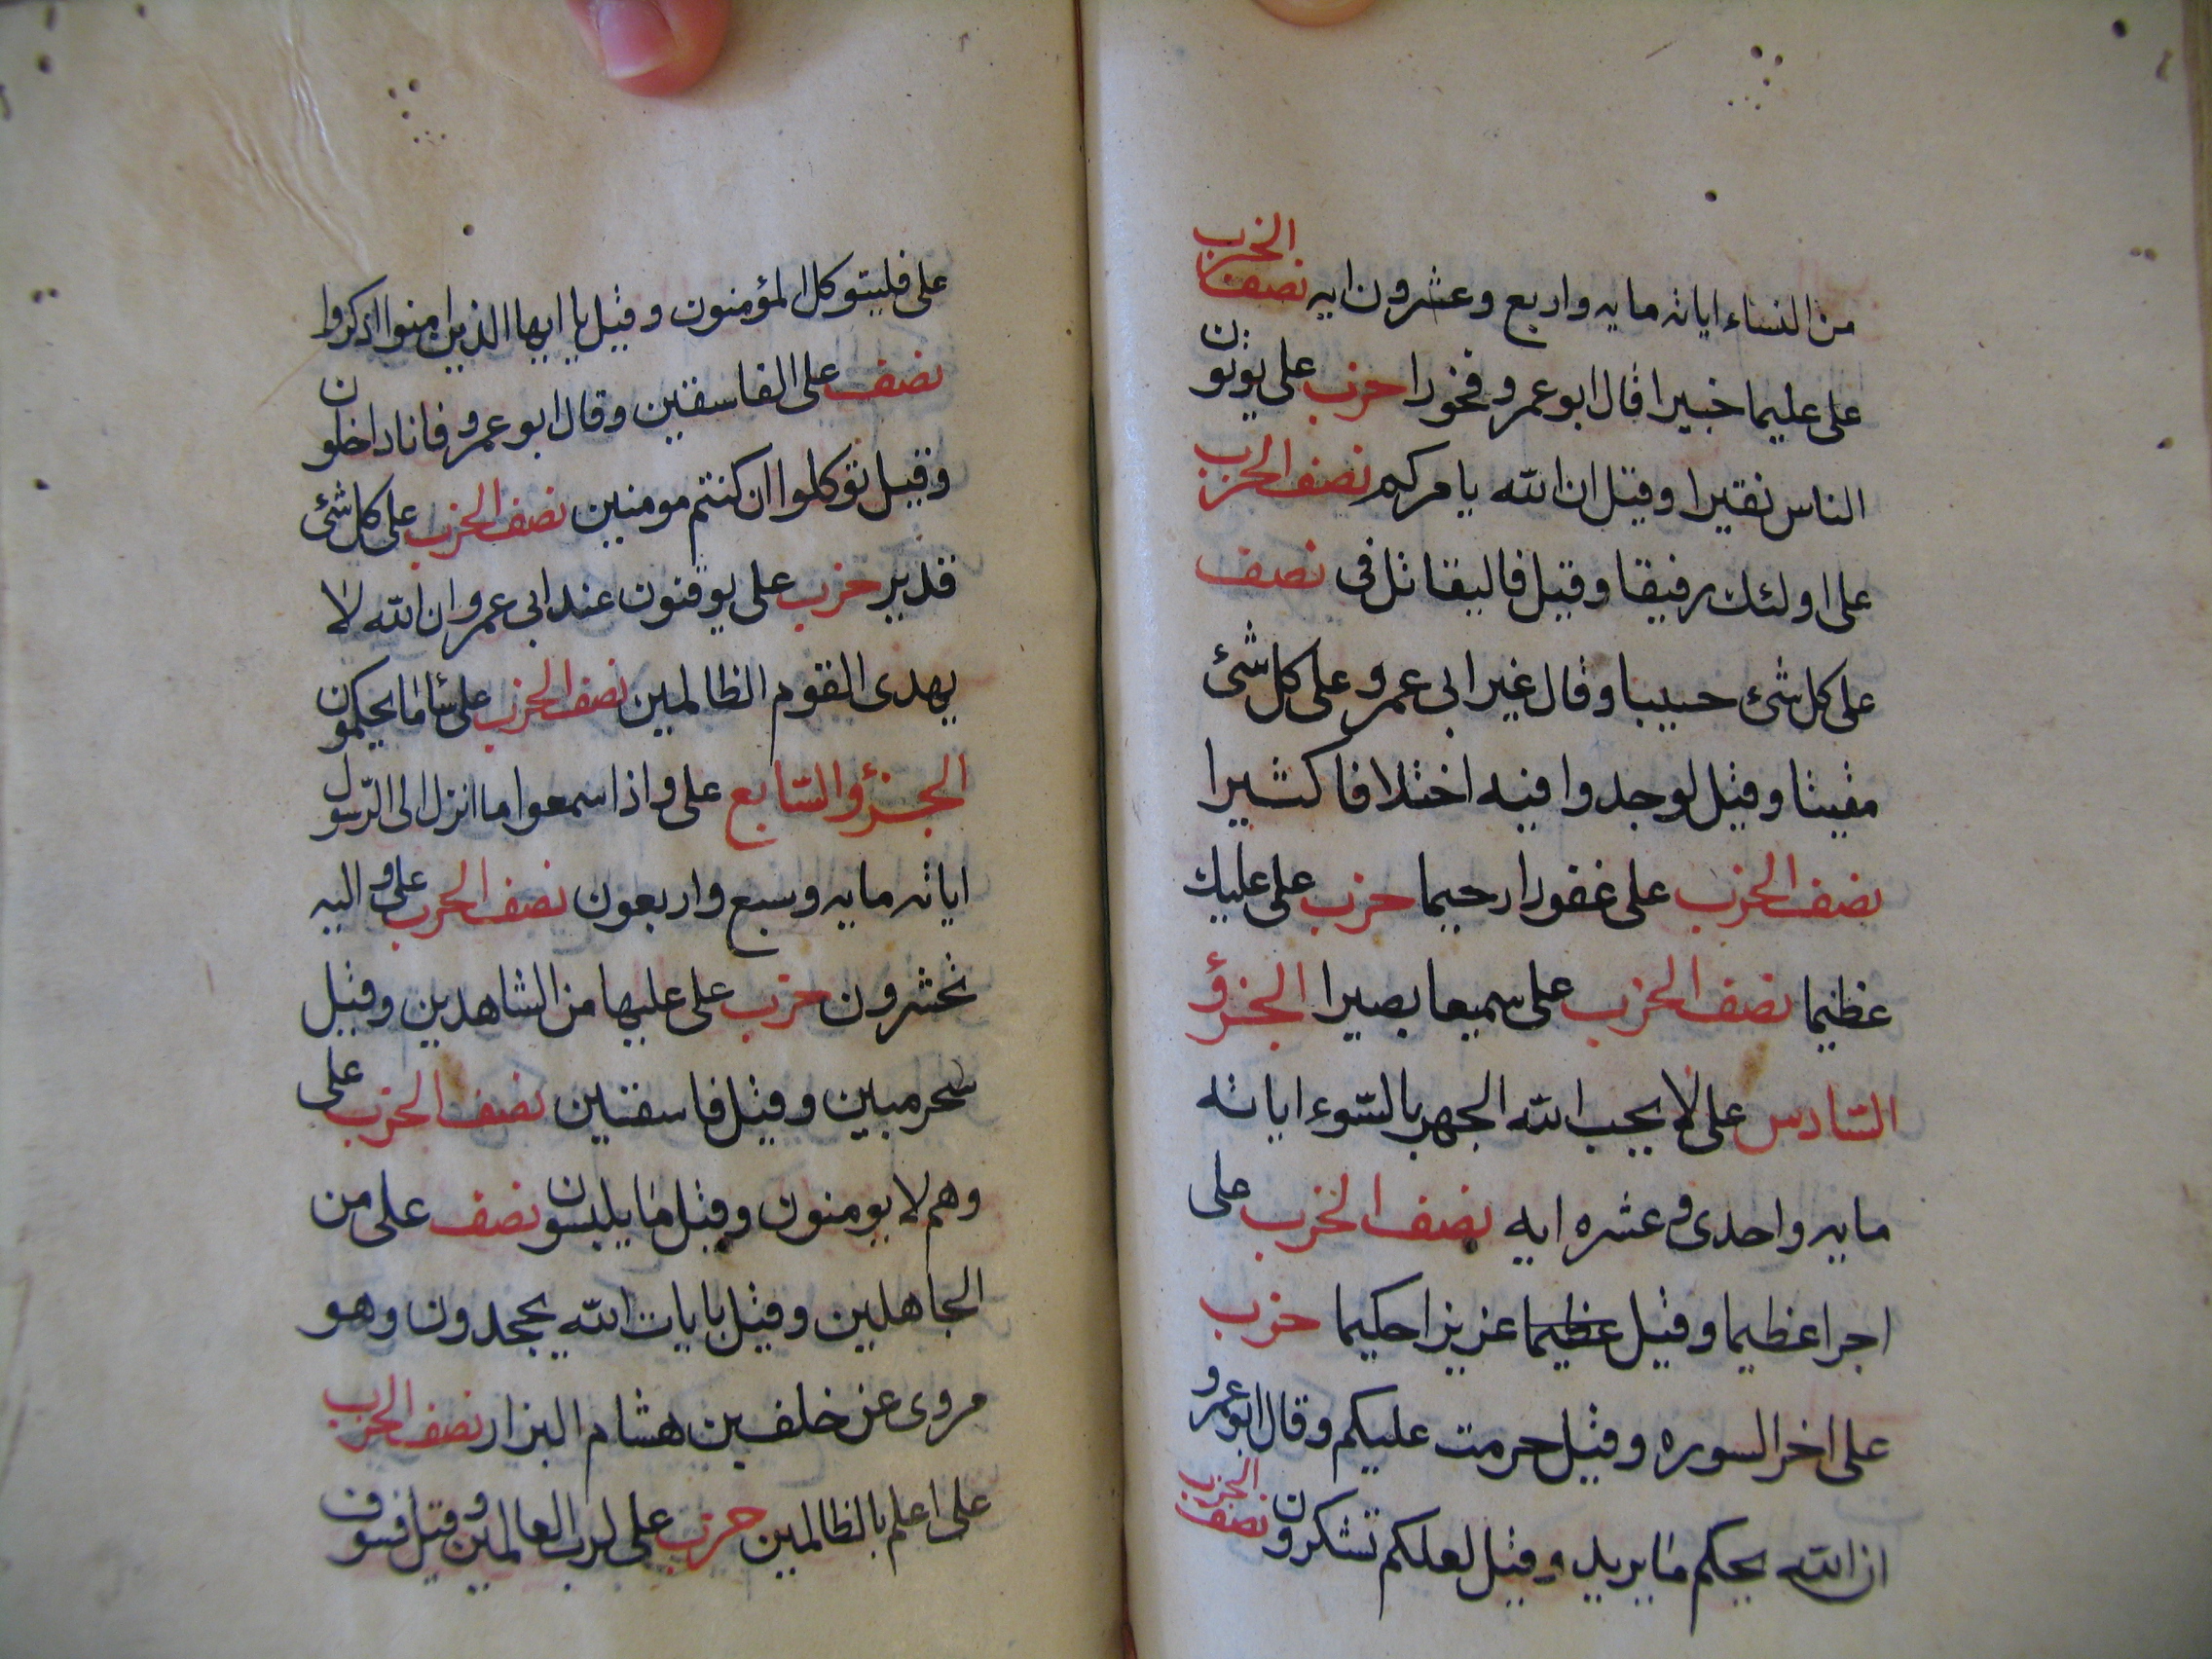 من النساء اياته مايه واربع وعشرون ايه نصف الحزب
على عليما خبيرا قال ابو عمرو فخورا حزب على يوتون
الناس نقيرا وقيل ان الله يامركم نصف الحزب
على اولئك رفيقا وقيل فاليقاتل في نصف
على كل شئ حسيبا وقال غير ابي عمرو على كل شئ
مقيتا وقيل لوجدوا فيه اختلافا كثيرا
نصف الحزب على غفورا رحيما حزب على عليك
عظيما نصف الحزب على سميعا بصيرا الجزؤ
السّادس على لا يحب الله الجهر بالسّوء اياته
مايه واحدى وعشره ايه نصف الحزب على
اجرا عظيما وقيل عظيما عزيزا حكيما حزب
على اخر السوره وقيل حرمت عليكم وقال ابو عمرو
ان الله يحكم ما يريد وقيل لعلكم تشكرون نصف الحزب
على فليتوكل المؤمنون وقيل يا ايها الذين امنوا اذكروا
نصف على الفاسقين وقال ابو عمرو فانا داخلون
وقيل توكلوا ان كنتم مومنين نصف الحزب على كل شئ
قدير حزب على يوقنون عند ابي عمرو ان الله لا
يهدى القوم الظالمين نصف الحزب على سا ما يحكمون
الجزؤ السّابع على واذا سمعوا ما انزل الى الرّسول
اياته مايه وسبع واربعون نصف الحزب على واليه
تحشرون حزب على عليها من الشاهدين وقيل
سحر مبين وقيل فاسقين نصف الحزب على
وهم لا يومنون وقيل ما يلبسون نصف على من
الجاهلين وقيل بايات الله يجحدون وهو
مروى عن خلف بن هشام البزار نصف الحزب
على اعلم بالظالمين حزب على لرب العالمين وقيل فسوف